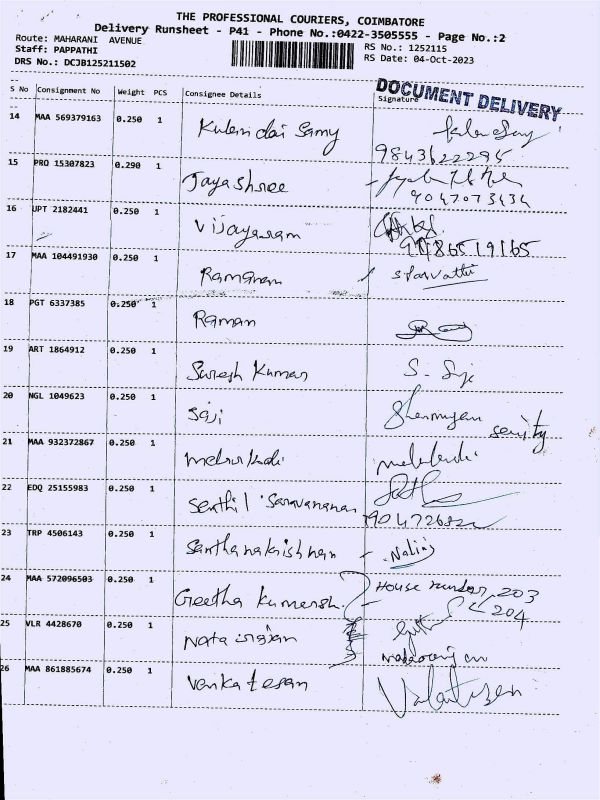 THE PROFESSIONAL COURIERS, COIMBATORE
Delivery Runsheet - P41 - Phone No.:0422-3505555 - Page No.:2
Route: MAHARANI AVENUE
Staff: PAPPATHI
DRS No.: DCJB125211502
RS No.: 1252115
RS Date: 04-Oct-2023
DOCUMENT DELIVERY
S No Consignment No Weight PCS Consignee Details Signature
14 MAA 569379163 0.250 1 Kulandai Samy
9843622295
15 PRO 15307823 0.290 1 Jayashree
9047073434
16 UPT 2182441 0.250 1 Vijayaram
17 MAA 104491930 0.250 1 Ramanan S Parvathi
18 PGT 6337385 0.250 1 Raman
19 ART 1864912 0.250 1 Suresh Kumar
20 NGL 1049623 0.250 1 Saji Shanmugam
21 MAA 932372867 0.250 1
22 EDQ 25155983 0.250 1 Senthil Saravanan
23 TRP 4506143 0.250 1 Santhanakrishnan - Nalini
24 MAA 572096503 0.250 1 Geetha Kumaresh House number, 203
204
25 VLR 4428670 0.250 1 Natarajan
26 MAA 861885674 0.250 1 Venkatesan Venkatesan